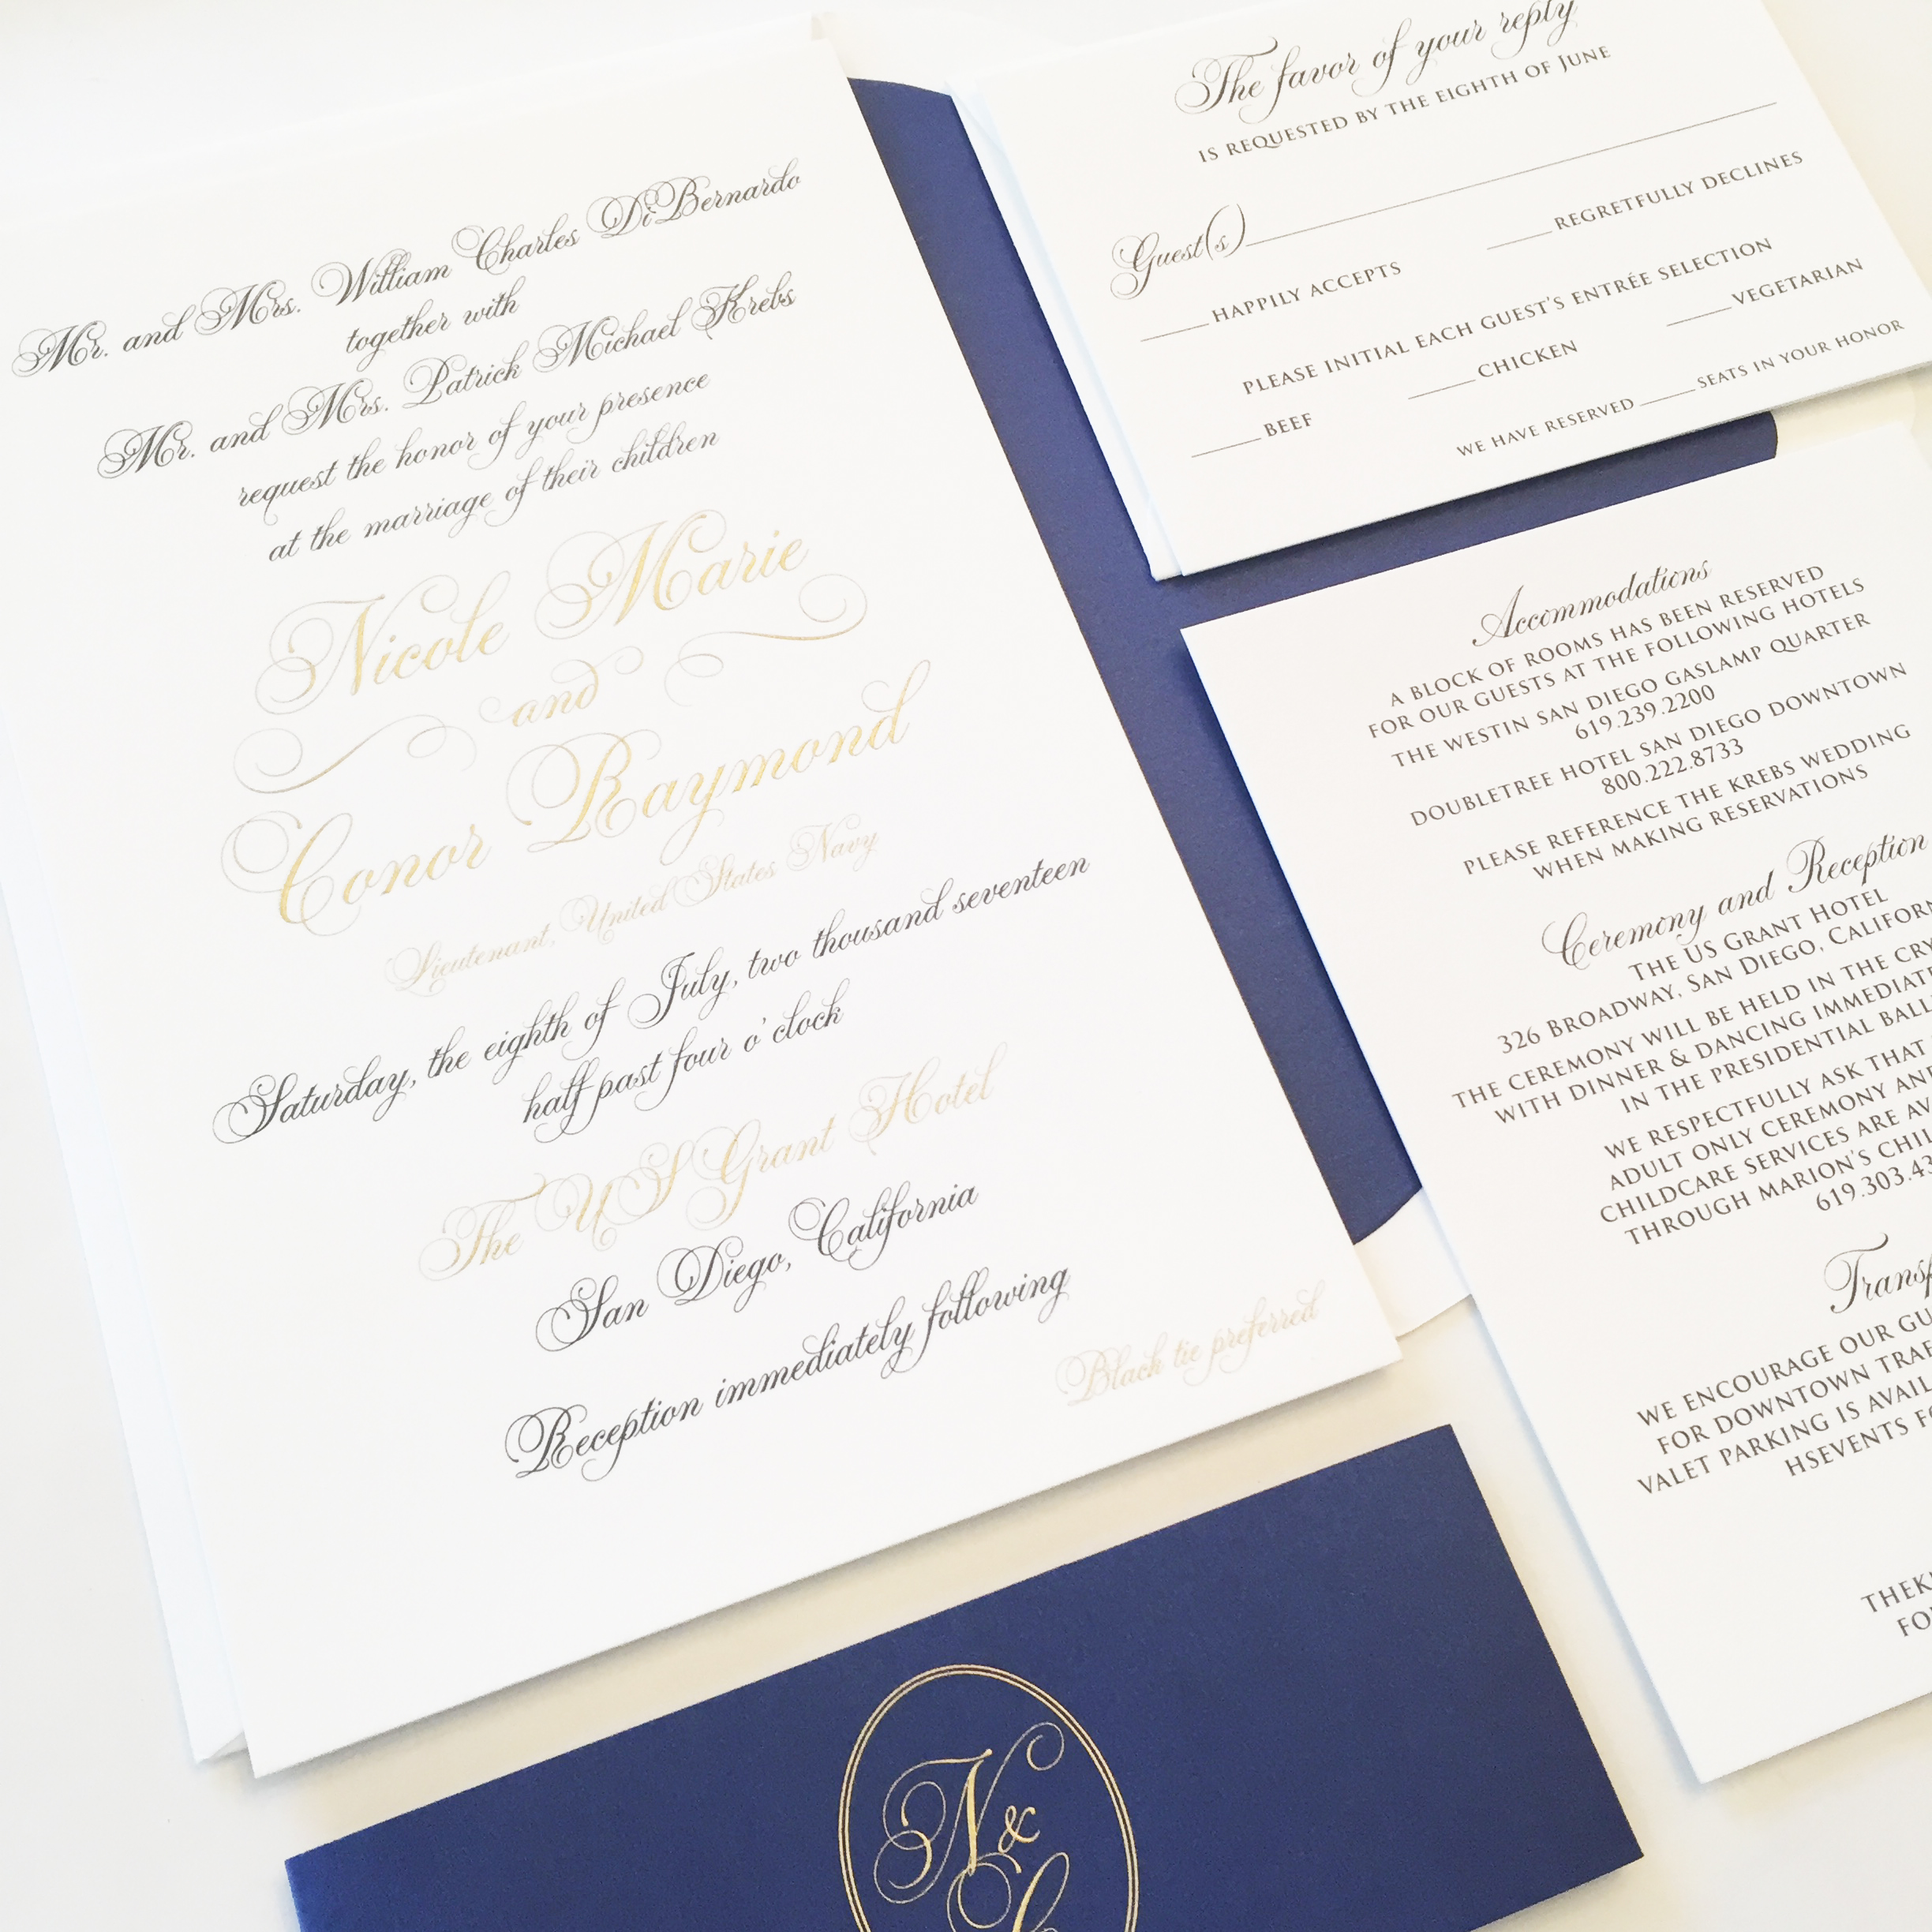 Mr. and Mrs. William Charles DiBernardo
together with
Mr. and Mrs. Patrick Michael Krebs
request the honor of your presence
at the marriage of their children
Nicole Marie
and
Conor Raymond
Lieutenant, United States Navy
Saturday, the eighth of July, two thousand seventeen
half past four o'clock
The US Grant Hotel
San Diego, California
Reception immediately following
Black tie preferred
The favor of your reply
IS REQUESTED BY THE EIGHTH OF JUNE
Guest(s)
HAPPILY ACCEPTS REGRETFULLY DECLINES
PLEASE INITIAL EACH GUEST'S ENTRÉE SELECTION
BEEF CHICKEN VEGETARIAN
WE HAVE RESERVED SEATS IN YOUR HONOR
Accommodations
A BLOCK OF ROOMS HAS BEEN RESERVED
FOR OUR GUESTS AT THE FOLLOWING HOTELS
THE WESTIN SAN DIEGO GASLAMP QUARTER
619.239.2200
DOUBLETREE HOTEL SAN DIEGO DOWNTOWN
800.222.8733
PLEASE REFERENCE THE KREBS WEDDING
WHEN MAKING RESERVATIONS
Ceremony and Reception
THE US GRANT HOTEL
326 BROADWAY, SAN DIEGO,
THE CEREMONY WILL BE HELD IN THE
WITH DINNER & DANCING
IN THE PRESIDENTIAL
WE RESPECTFULLY ASK THAT
ADULT ONLY CEREMONY
CHILDCARE SERVICES ARE
THROUGH MARION'S
619.303.
WE ENCOURAGE OUR
FOR DOWNTOWN
VALET PARKING IS
HSEVENTS
N &
C